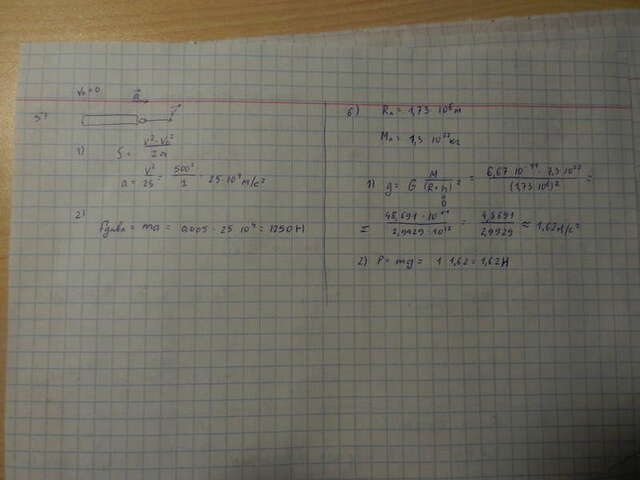 V₀=0
a
5)
1)
S = (V² - V₀²) / 2a
a = V² / 2S = 500² / 1 = 25 · 10⁴ м/с²
2)
Fдавл = ma = 0,005 · 25 · 10⁴ = 1250 Н
6) Rл = 1,73 · 10⁶ м
Mл = 7,3 · 10²² кг
1) g = G M / (R+h)² = 6,67 · 10⁻¹¹ · 7,3 · 10²² / (1,73 · 10⁶)² =
0
= 48,691 · 10¹¹ / 2,9929 · 10¹² = 4,8691 / 2,9929 ≈ 1,62 м/с²
2) P = mg = 1 · 1,62 = 1,62 Н